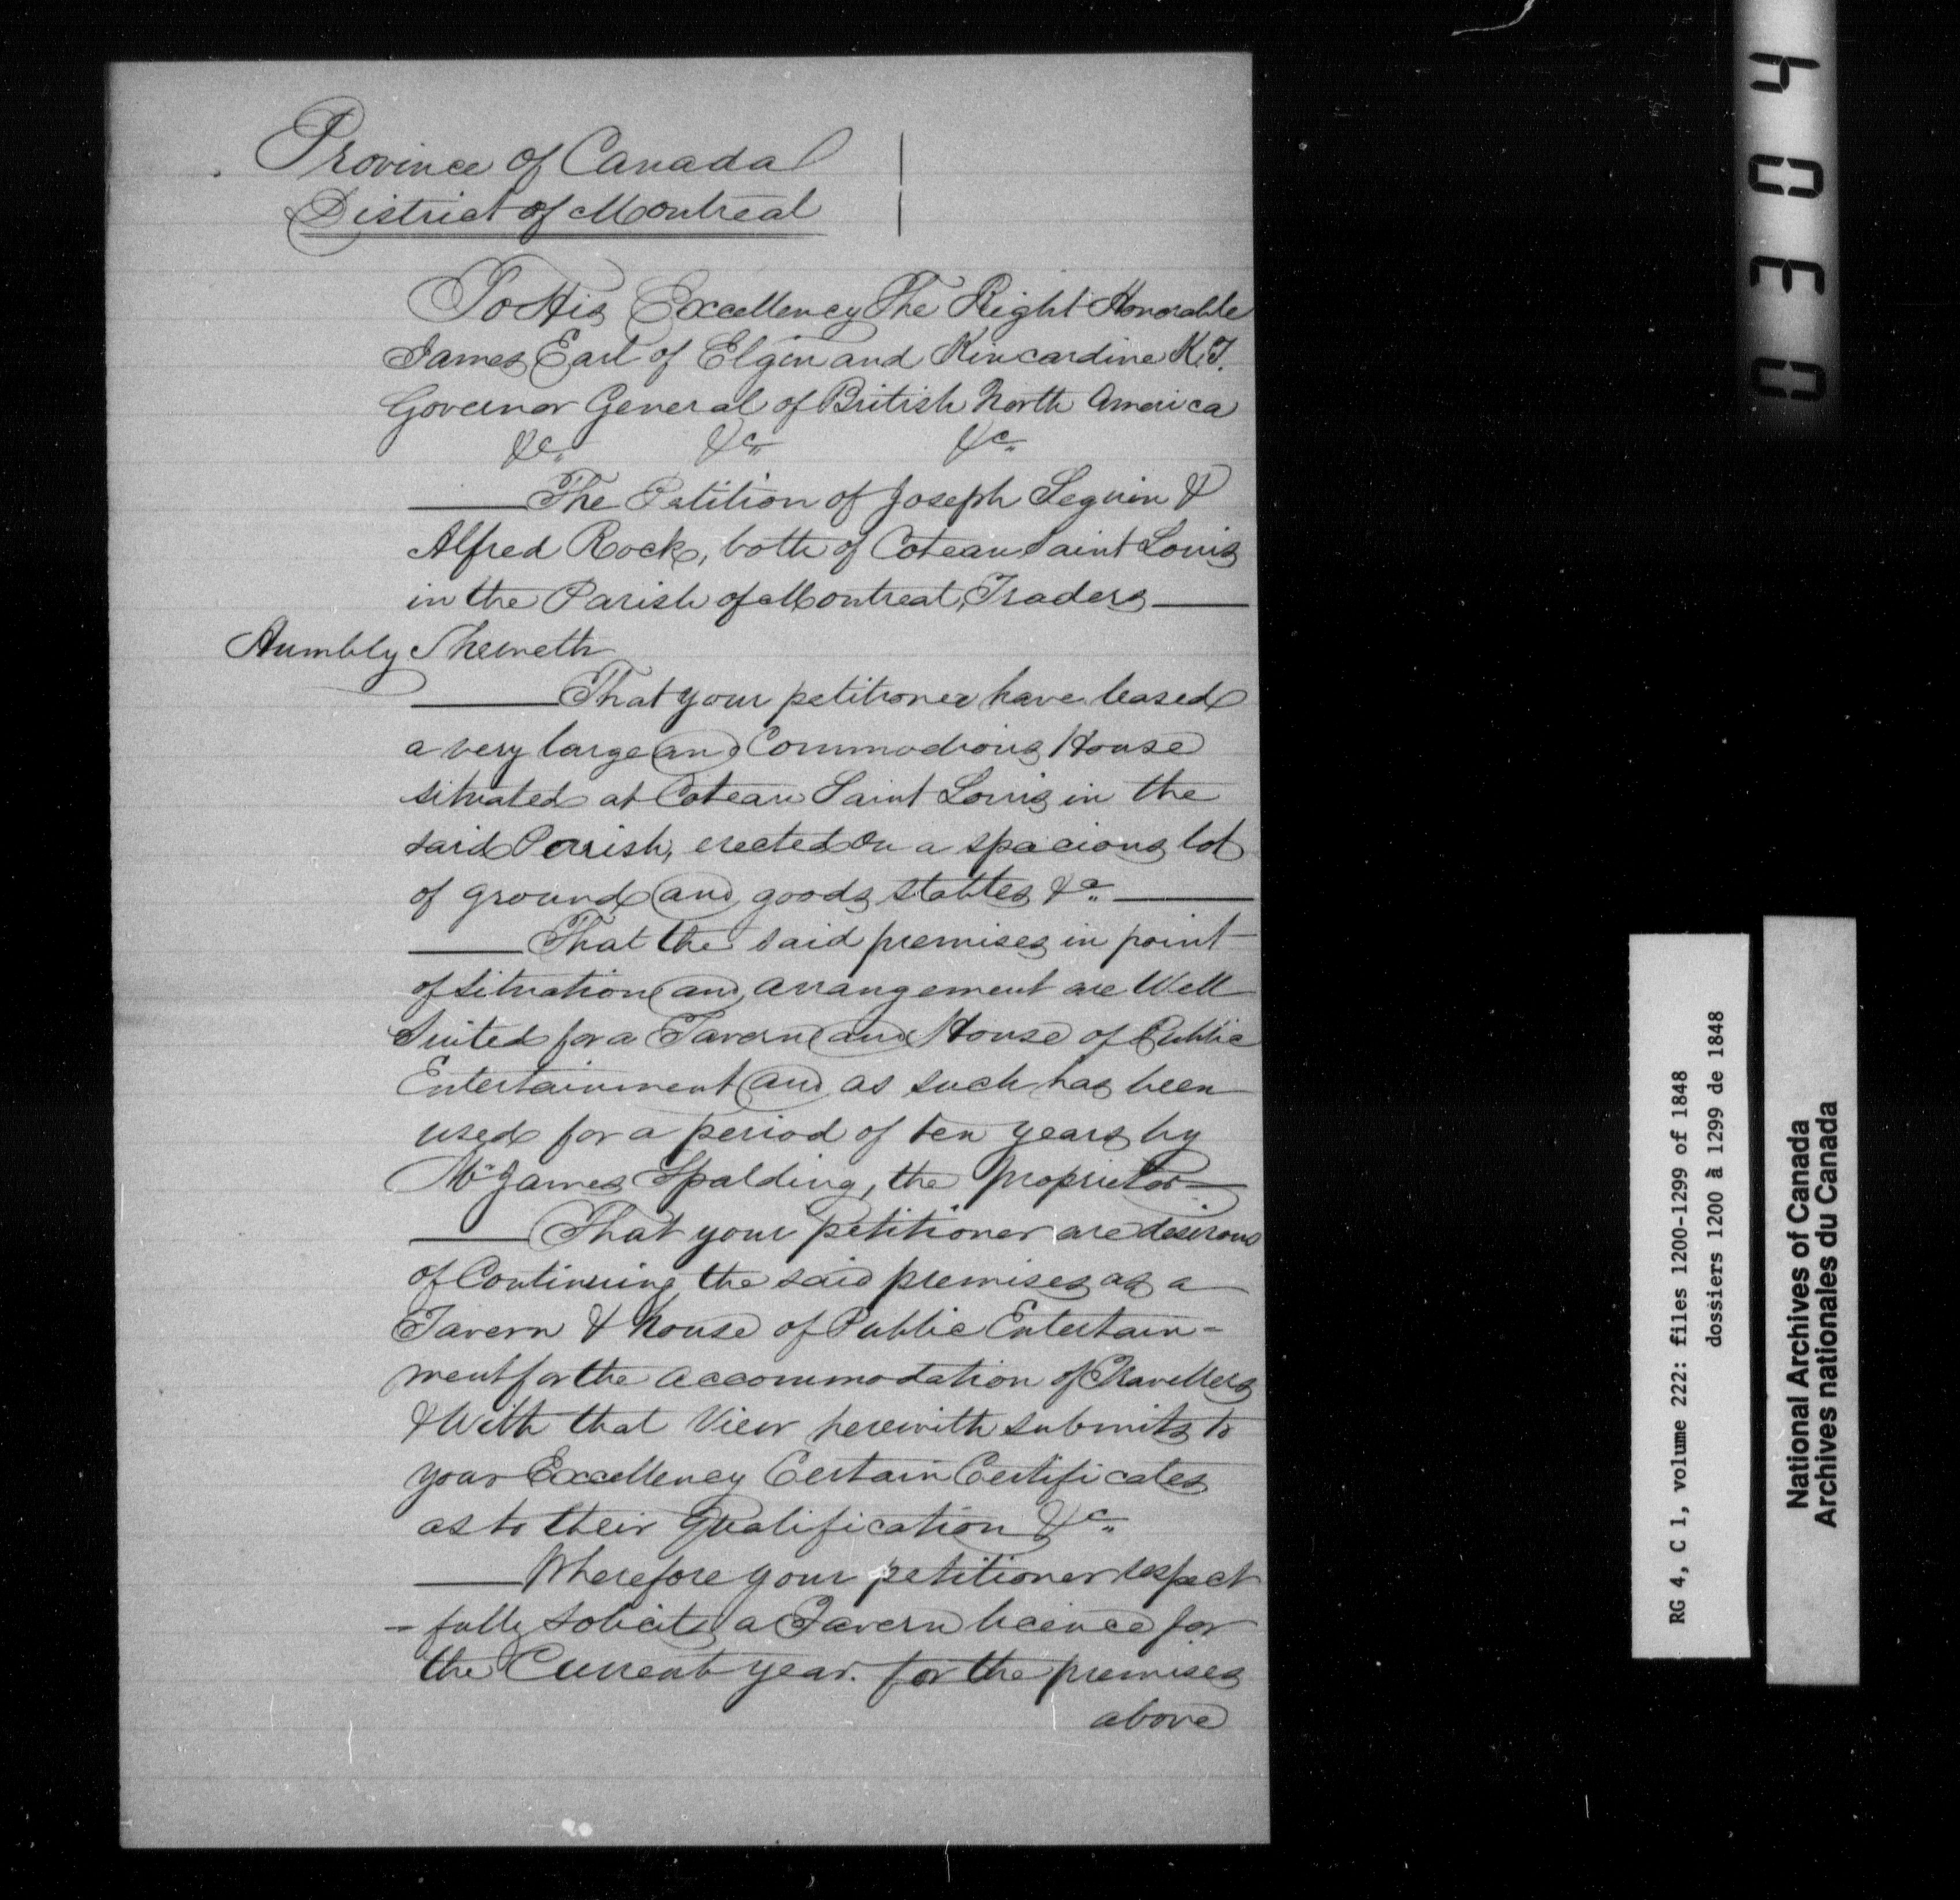 Province of Canada
District of Montreal
To His Excellency The Right Honorable
James Earl of Elgin and Kincardine K.T.
Governor General of British North America
&c. &c. &c.
The Petition of Joseph Seguin &
Alfred Rock, both of Coteau Saint Louis
in the Parish of Montreal, Traders
Humbly Sheweth
That your petitioner have leased
a very large and Commodious House
situated at Coteau Saint Louis in the
said Parish, erected on a spacious lot
of ground and goods stables &c.
That the said premises in point
of situation and arrangement are Well
Suited for a Tavern and House of Public
Entertainment and as such has been
used for a period of ten years by
Mr James Spalding, the proprietor
That your petitioner are desirous
of Continuing the said premises as a
Tavern & house of Public Entertain-
ment for the accommodation of Travellers
& With that View herewith submits to
your Excellency Certain Certificates
as to their qualification &c.
Wherefore your petitioner respect
-fully solicits a Tavern licence for
the Current year. for the premises
above
0304
RG 4, C 1, volume 222: files 1200-1299 of 1848
dossiers 1200 à 1299 de 1848
National Archives of Canada
Archives nationales du Canada